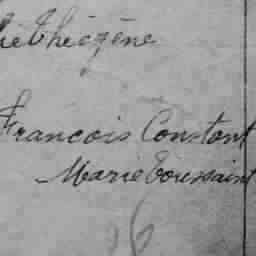 Théogène
François Constant
Marie Toussaint